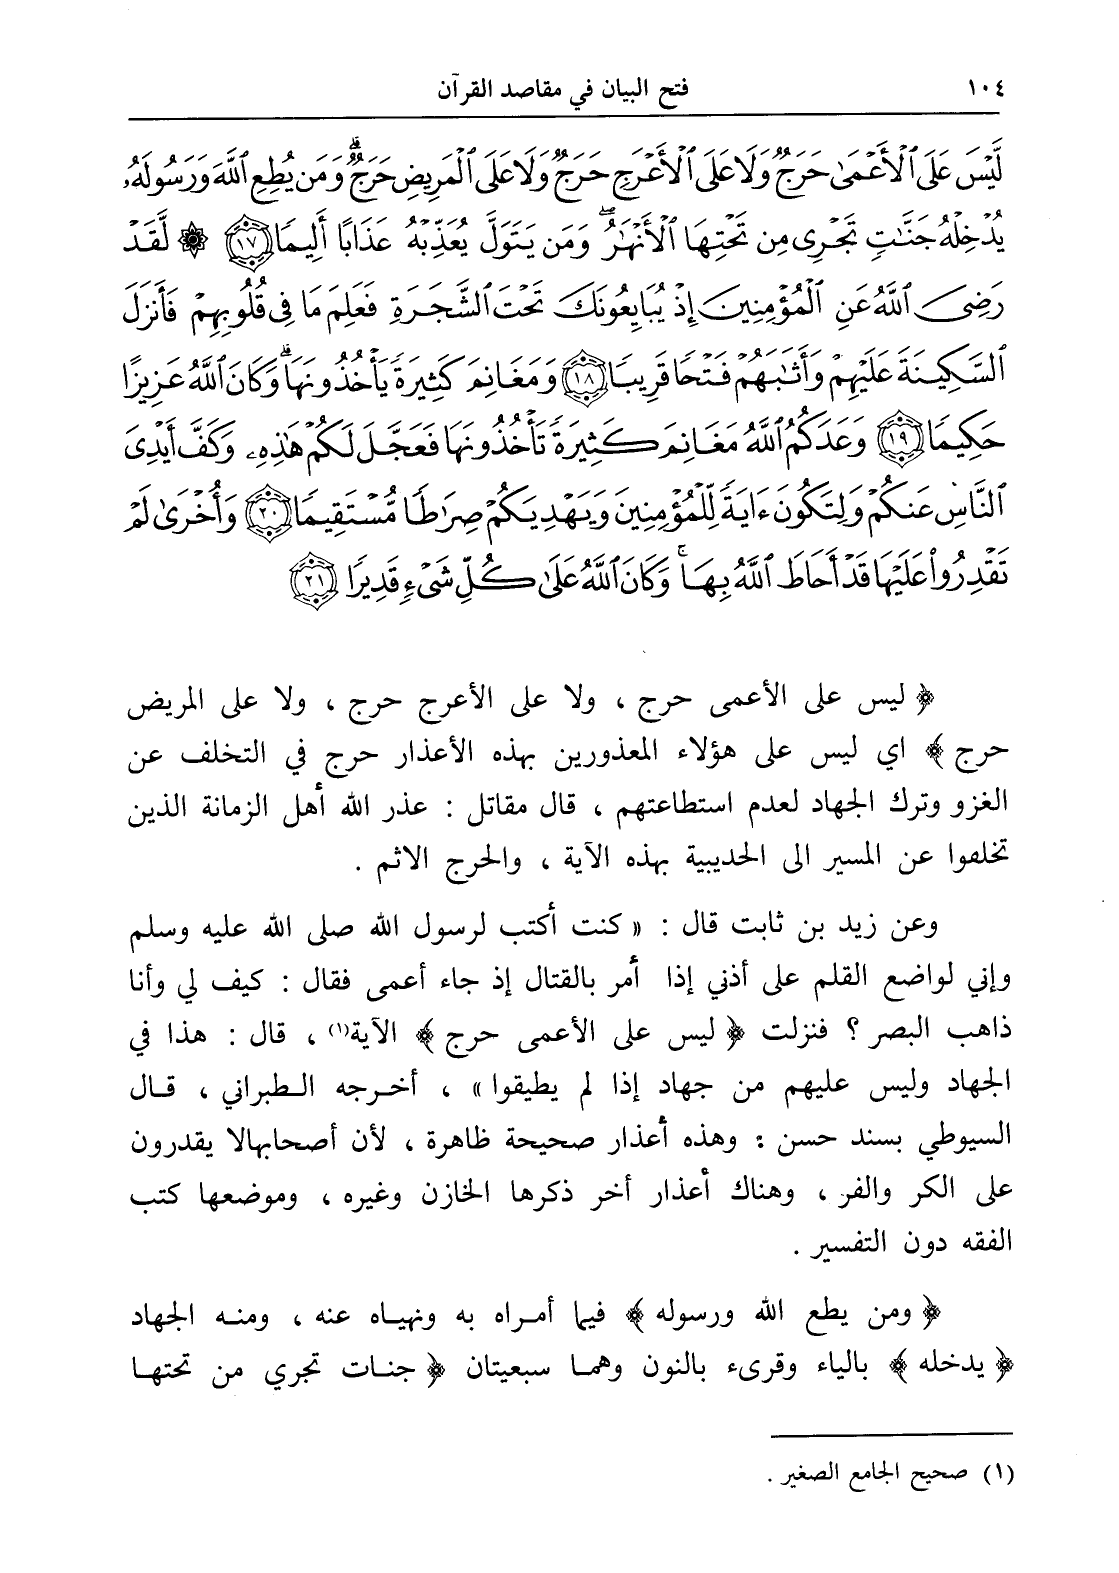 ١٠٤ فتح البيان في مقاصد القرآن
لَّيْسَ عَلَى ٱلْأَعْمَىٰ حَرَجٌ وَلَا عَلَى ٱلْأَعْرَجِ حَرَجٌ وَلَا عَلَى ٱلْمَرِيضِ حَرَجٌ ۗ وَمَن يُطِعِ ٱللَّهَ وَرَسُولَهُۥ
يُدْخِلْهُ جَنَّٰتٍ تَجْرِى مِن تَحْتِهَا ٱلْأَنْهَٰرُ ۖ وَمَن يَتَوَلَّ يُعَذِّبْهُ عَذَابًا أَلِيمًا ﴿١٧﴾ ۞ لَّقَدْ
رَضِىَ ٱللَّهُ عَنِ ٱلْمُؤْمِنِينَ إِذْ يُبَايِعُونَكَ تَحْتَ ٱلشَّجَرَةِ فَعَلِمَ مَا فِى قُلُوبِهِمْ فَأَنزَلَ
ٱلسَّكِينَةَ عَلَيْهِمْ وَأَثَٰبَهُمْ فَتْحًا قَرِيبًا ﴿١٨﴾ وَمَغَانِمَ كَثِيرَةً يَأْخُذُونَهَا ۗ وَكَانَ ٱللَّهُ عَزِيزًا
حَكِيمًا ﴿١٩﴾ وَعَدَكُمُ ٱللَّهُ مَغَانِمَ كَثِيرَةً تَأْخُذُونَهَا فَعَجَّلَ لَكُمْ هَٰذِهِۦ وَكَفَّ أَيْدِىَ
ٱلنَّاسِ عَنكُمْ وَلِتَكُونَ ءَايَةً لِّلْمُؤْمِنِينَ وَيَهْدِيَكُمْ صِرَٰطًا مُّسْتَقِيمًا ﴿٢٠﴾ وَأُخْرَىٰ لَمْ
تَقْدِرُوا۟ عَلَيْهَا قَدْ أَحَاطَ ٱللَّهُ بِهَا ۚ وَكَانَ ٱللَّهُ عَلَىٰ كُلِّ شَىْءٍ قَدِيرًا ﴿٢١﴾
﴿ ليس على الأعمى حرج ، ولا على الأعرج حرج ، ولا على المريض
حرج ﴾ اي ليس على هؤلاء المعذورين بهذه الأعذار حرج في التخلف عن
الغزو وترك الجهاد لعدم استطاعتهم ، قال مقاتل : عذر الله أهل الزمانة الذين
تخلفوا عن المسير الى الحديبية بهذه الآية ، والحرج الاثم .
وعن زيد بن ثابت قال : « كنت أكتب لرسول الله صلى الله عليه وسلم
وإني لواضع القلم على أذني إذا أمر بالقتال إذ جاء أعمى فقال : كيف لي وأنا
ذاهب البصر ؟ فنزلت ﴿ ليس على الأعمى حرج ﴾ الآية(١) ، قال : هذا في
الجهاد وليس عليهم من جهاد إذا لم يطيقوا » ، أخرجه الطبراني ، قال
السيوطي بسند حسن : وهذه أعذار صحيحة ظاهرة ، لأن أصحابهالا يقدرون
على الكر والفر ، وهناك أعذار أخر ذكرها الخازن وغيره ، وموضعها كتب
الفقه دون التفسير .
﴿ ومن يطع الله ورسوله ﴾ فيما أمراه به ونهياه عنه ، ومنه الجهاد
﴿ يدخله ﴾ بالياء وقرىء بالنون وهما سبعيتان ﴿ جنات تجري من تحتها
(١) صحيح الجامع الصغير .